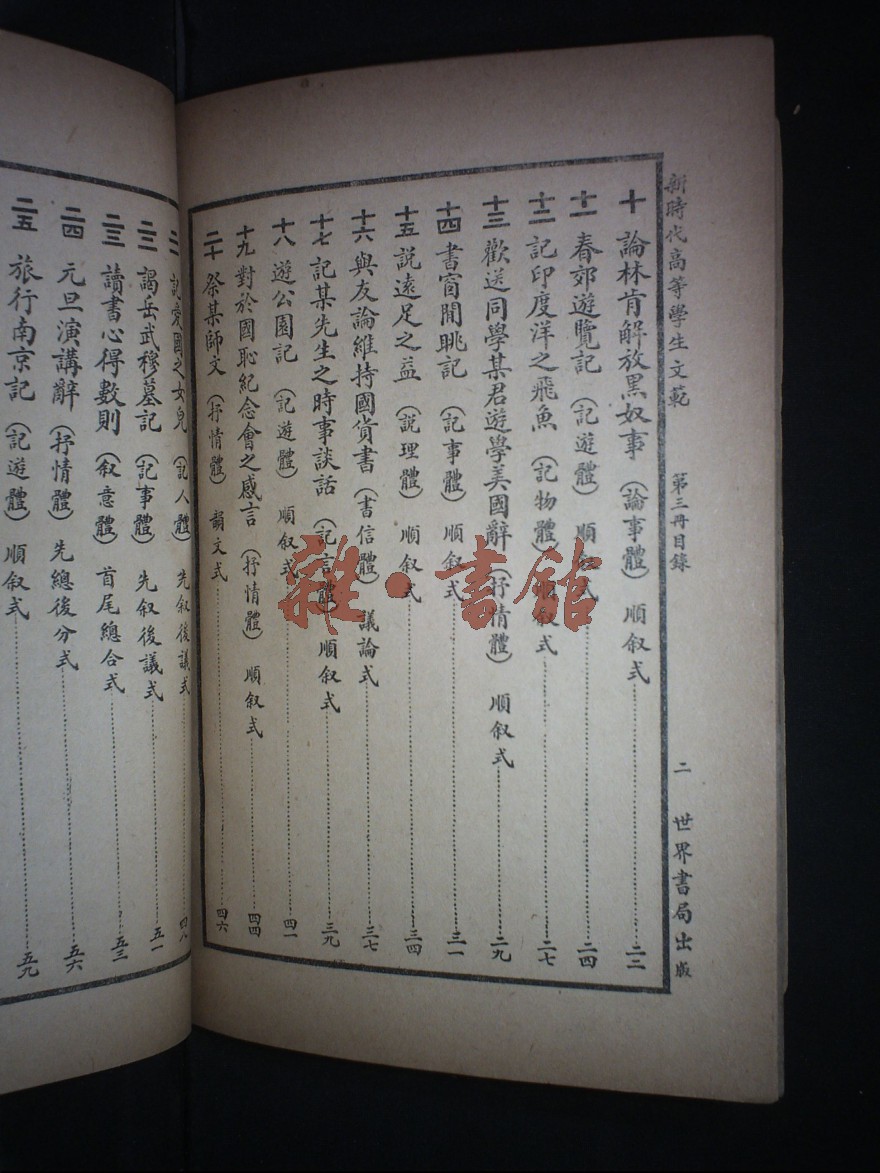 新時代高等學生文範 第三冊目錄 二 世界書局出版
十 論林肯解放黑奴事（論事體）順叙式 二二
十一 春郊遊覽記（記遊體）順叙式 二四
十二 記印度洋之飛魚（記物體）順叙式 二七
十三 歡送同學某君遊學美國辭（抒情體）順叙式 二九
十四 書窗閒眺記（記事體）順叙式 三一
十五 説遠足之益（説理體）順叙式 三四
十六 與友論維持國貨書（書信體）議論式 三七
十七 記某先生之時事談話（記言體）順叙式 三九
十八 遊公園記（記遊體）順叙式 四一
十九 對於國恥紀念會之感言（抒情體）順叙式 四四
二十 祭某師文（抒情體）韻文式 四六
二一 記愛國之女兒（記人體）先叙後議式 四八
二二 謁岳武穆墓記（記事體）先叙後議式 五一
二三 讀書心得數則（叙意體）首尾總合式 五三
二四 元旦演講辭（抒情體）先總後分式 五六
二五 旅行南京記（記遊體）順叙式 五九
雜·書館